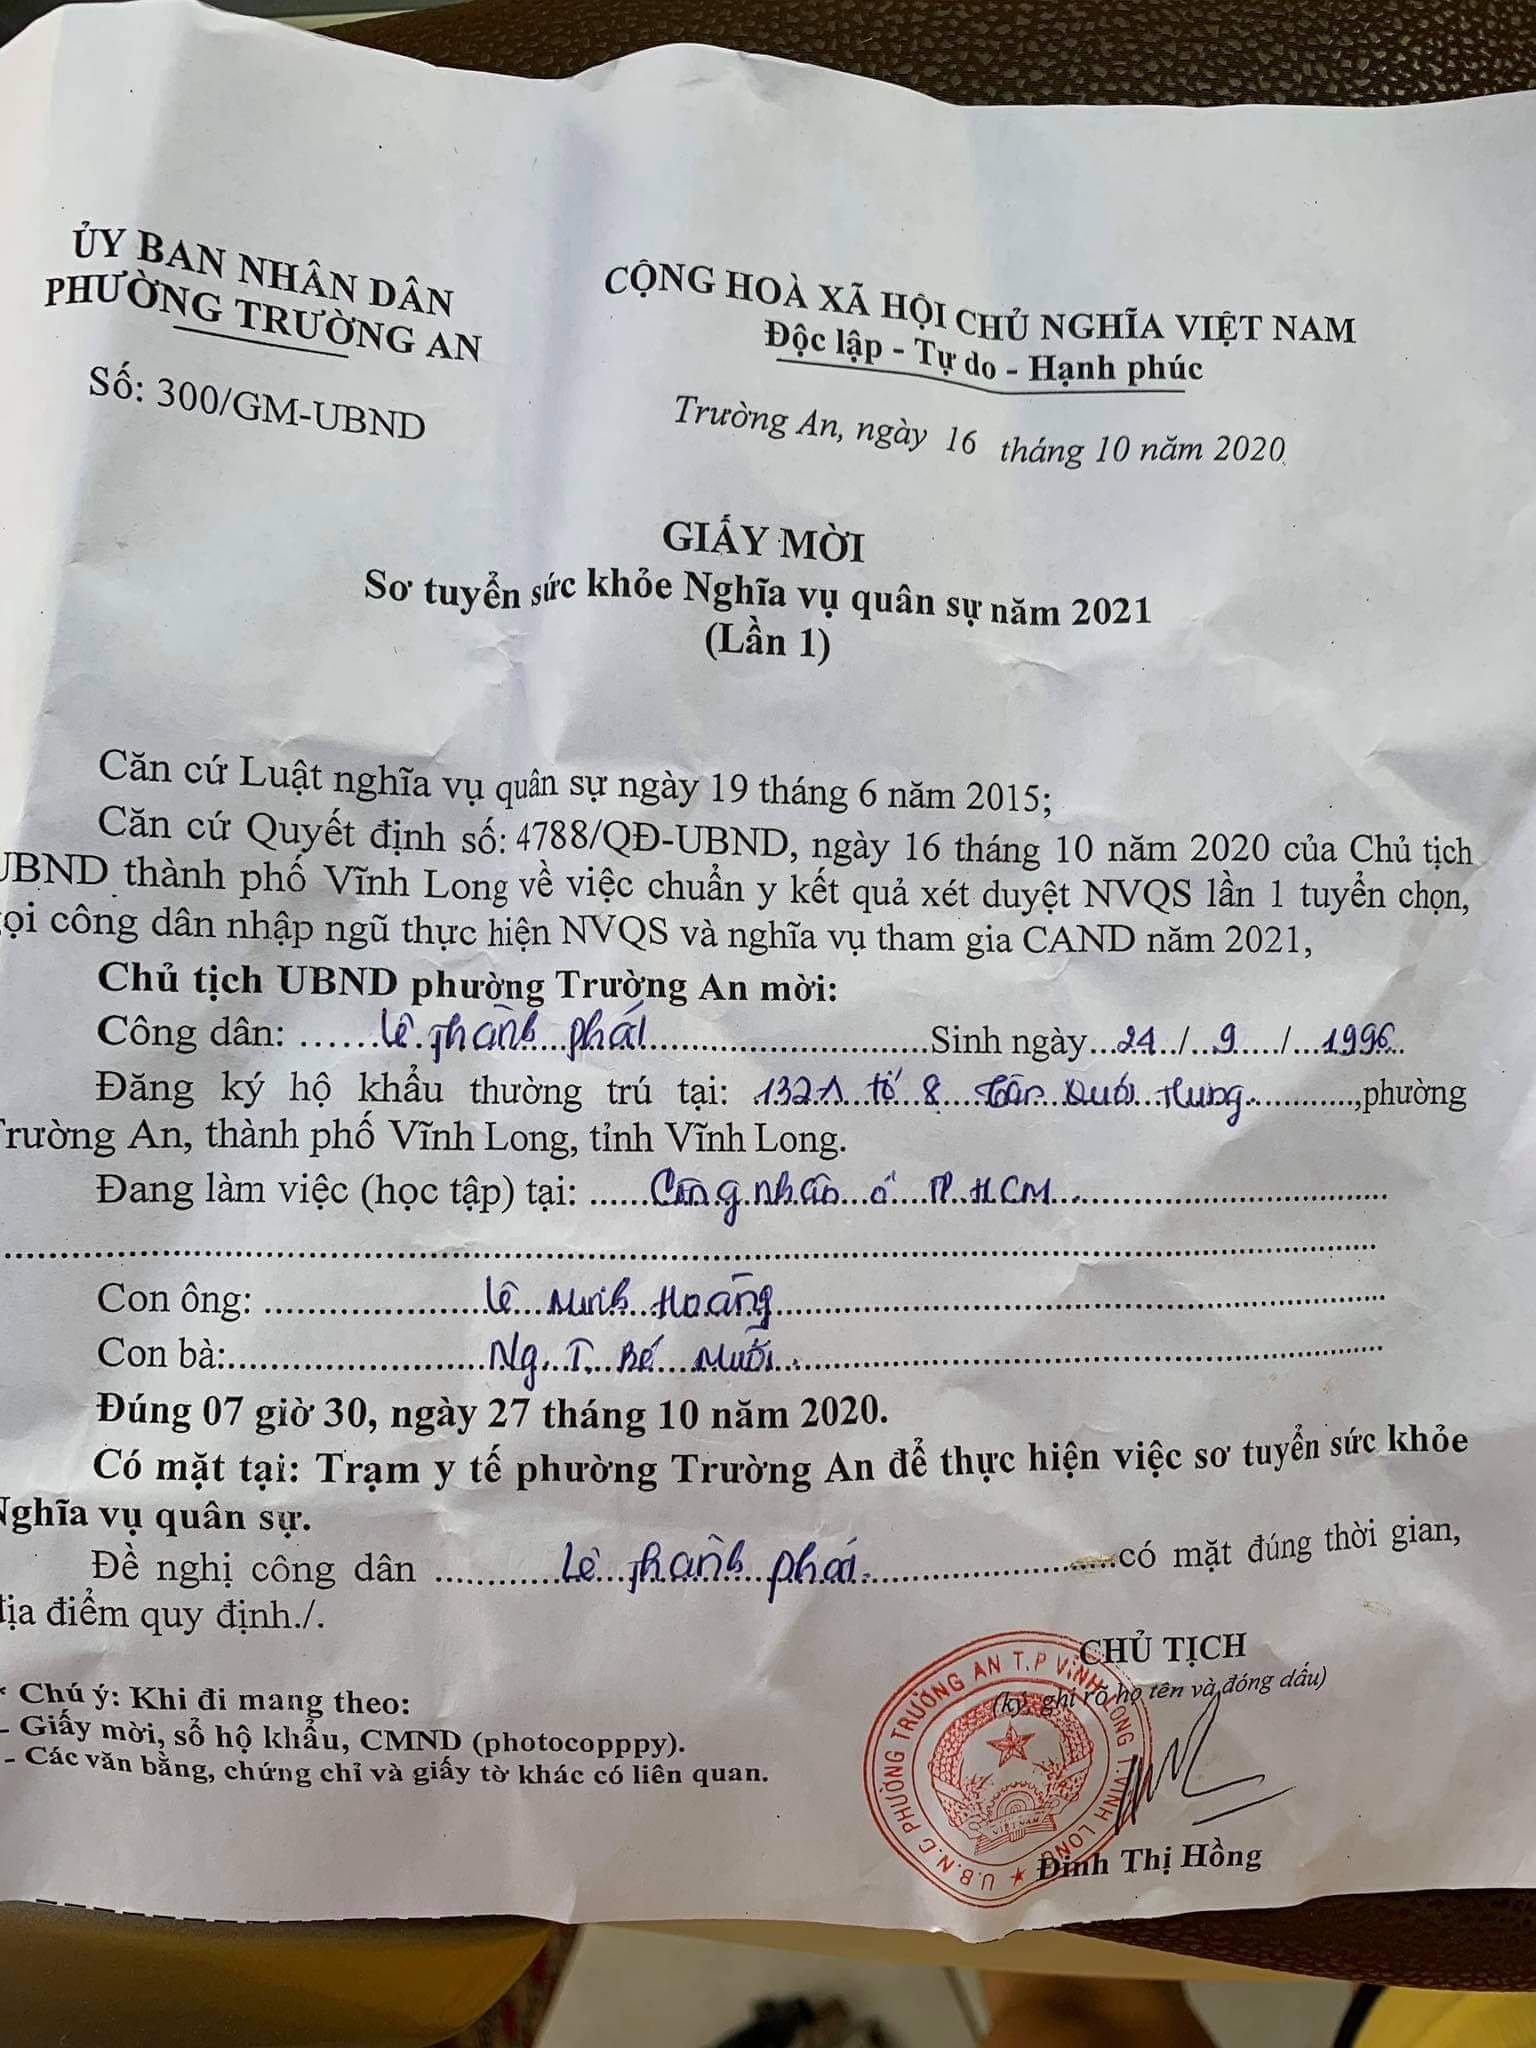 ỦY BAN NHÂN DÂN
PHƯỜNG TRƯỜNG AN
Số: 300/GM-UBND
CỘNG HOÀ XÃ HỘI CHỦ NGHĨA VIỆT NAM
Độc lập - Tự do - Hạnh phúc
Trường An, ngày 16 tháng 10 năm 2020
GIẤY MỜI
Sơ tuyển sức khỏe Nghĩa vụ quân sự năm 2021
(Lần 1)
Căn cứ Luật nghĩa vụ quân sự ngày 19 tháng 6 năm 2015;
Căn cứ Quyết định số: 4788/QĐ-UBND, ngày 16 tháng 10 năm 2020 của Chủ tịch
UBND thành phố Vĩnh Long về việc chuẩn y kết quả xét duyệt NVQS lần 1 tuyển chọn,
ọi công dân nhập ngũ thực hiện NVQS và nghĩa vụ tham gia CAND năm 2021,
Chủ tịch UBND phường Trường An mời:
Công dân: ......Lê Thành Phát..............................Sinh ngày...24.../...9..../...1996...
Đăng ký hộ khẩu thường trú tại: 132A tổ 8 Tân Xuân Hưng............,phường
Trường An, thành phố Vĩnh Long, tỉnh Vĩnh Long.
Đang làm việc (học tập) tại: ......Công nhân ở TP. HCM..................................
Con ông: ......................Lê Minh Hoàng..................................................
Con bà:..........................Ng. T. Bé Mười..................................................
Đúng 07 giờ 30, ngày 27 tháng 10 năm 2020.
Có mặt tại: Trạm y tế phường Trường An để thực hiện việc sơ tuyển sức khỏe
Nghĩa vụ quân sự.
Đề nghị công dân ............Lê Thành Phát.........................có mặt đúng thời gian,
địa điểm quy định./.
CHỦ TỊCH
(ký, ghi rõ họ tên và đóng dấu)
* Chú ý: Khi đi mang theo:
- Giấy mời, sổ hộ khẩu, CMND (photocopppy).
- Các văn bằng, chứng chỉ và giấy tờ khác có liên quan.
U.B.N.D PHƯỜNG TRƯỜNG AN T.P VĨNH LONG T.VĨNH LONG
VIỆT NAM
Đinh Thị Hồng